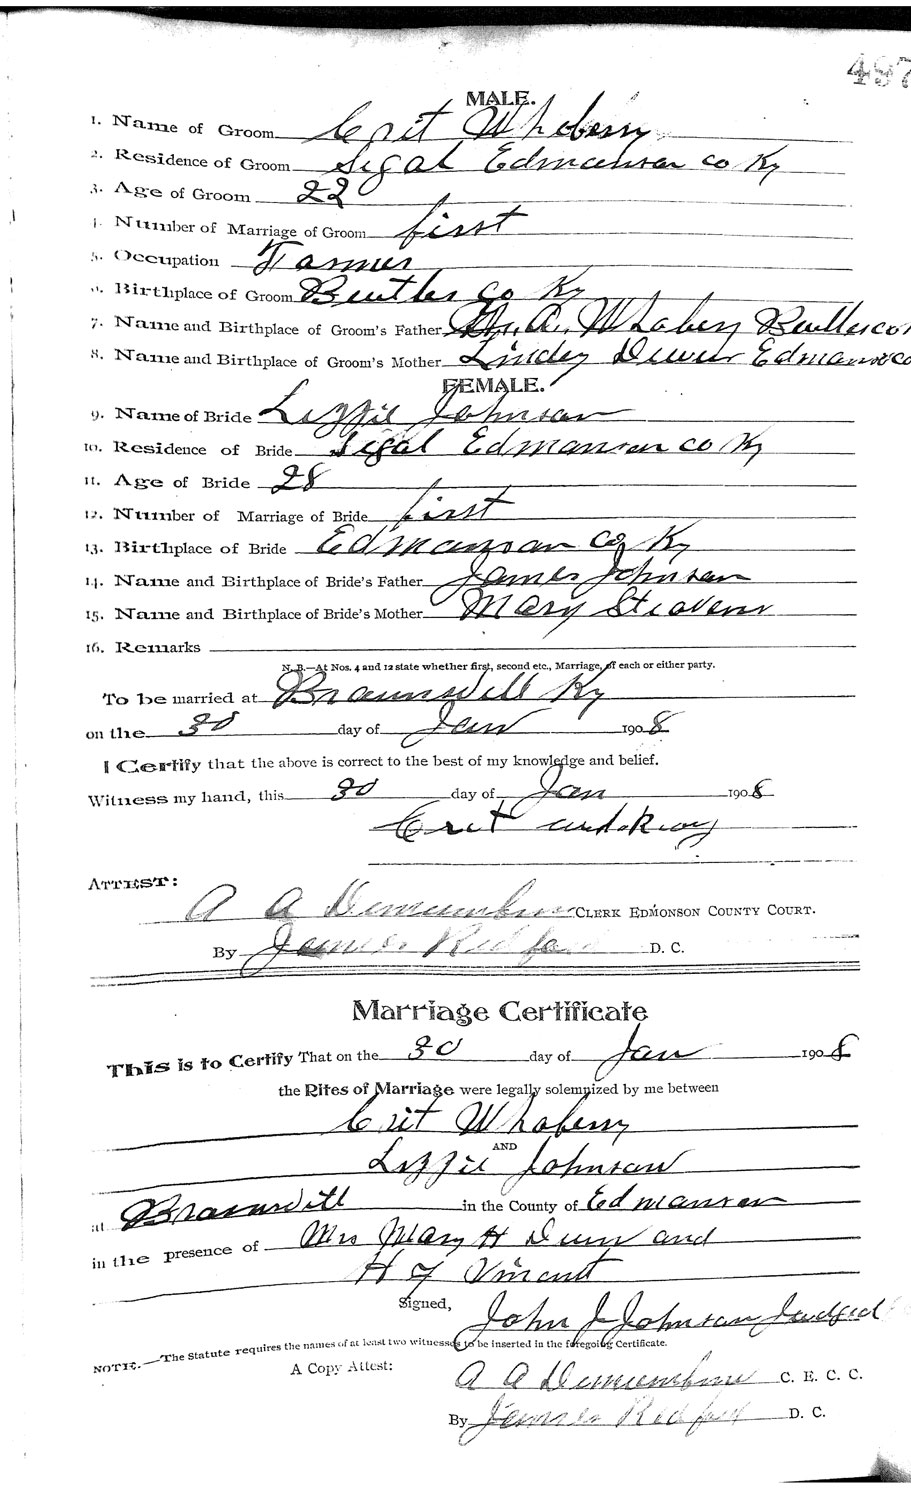 497
MALE.
1. Name of Groom Crit Whoberry
2. Residence of Groom Segal Edmonson co Ky
3. Age of Groom 22
4. Number of Marriage of Groom first
5. Occupation Farmer
6. Birthplace of Groom Buttler Co Ky
7. Name and Birthplace of Groom's Father A. Whobery
8. Name and Birthplace of Groom's Mother Lindey Edmonson co
FEMALE.
9. Name of Bride Lizzie Johnson
10. Residence of Bride Segal Edmonson co Ky
11. Age of Bride 28
12. Number of Marriage of Bride first
13. Birthplace of Bride Edmonson Co, Ky
14. Name and Birthplace of Bride's Father James Johnson
15. Name and Birthplace of Bride's Mother Mary Steavens
16. Remarks
N. B.—At Nos. 4 and 12 state whether first, second etc., Marriage, of each or either party.
To be married at Brownsvill Ky
on the 30 day of Jan 1908
I Certify that the above is correct to the best of my knowledge and belief.
Witness my hand, this 30 day of Jan 1908
Crit
ATTEST:
A A Demumbrum CLERK EDMONSON COUNTY COURT.
By James Redford D. C.
Marriage Certificate
This is to Certify That on the 30 day of Jan 1908
the Rites of Marriage were legally solemnized by me between
Crit Whoberry
AND
Lizzie Johnson
at Brownsvill in the County of Edmonson
in the presence of Mrs Mary H and
H F Vincent
Signed,
John J Johnson
NOTE.—The Statute requires the names of at least two witnesses to be inserted in the foregoing Certificate.
A Copy Attest:
A A Demumbrum C. E. C. C.
By James Redford D. C.